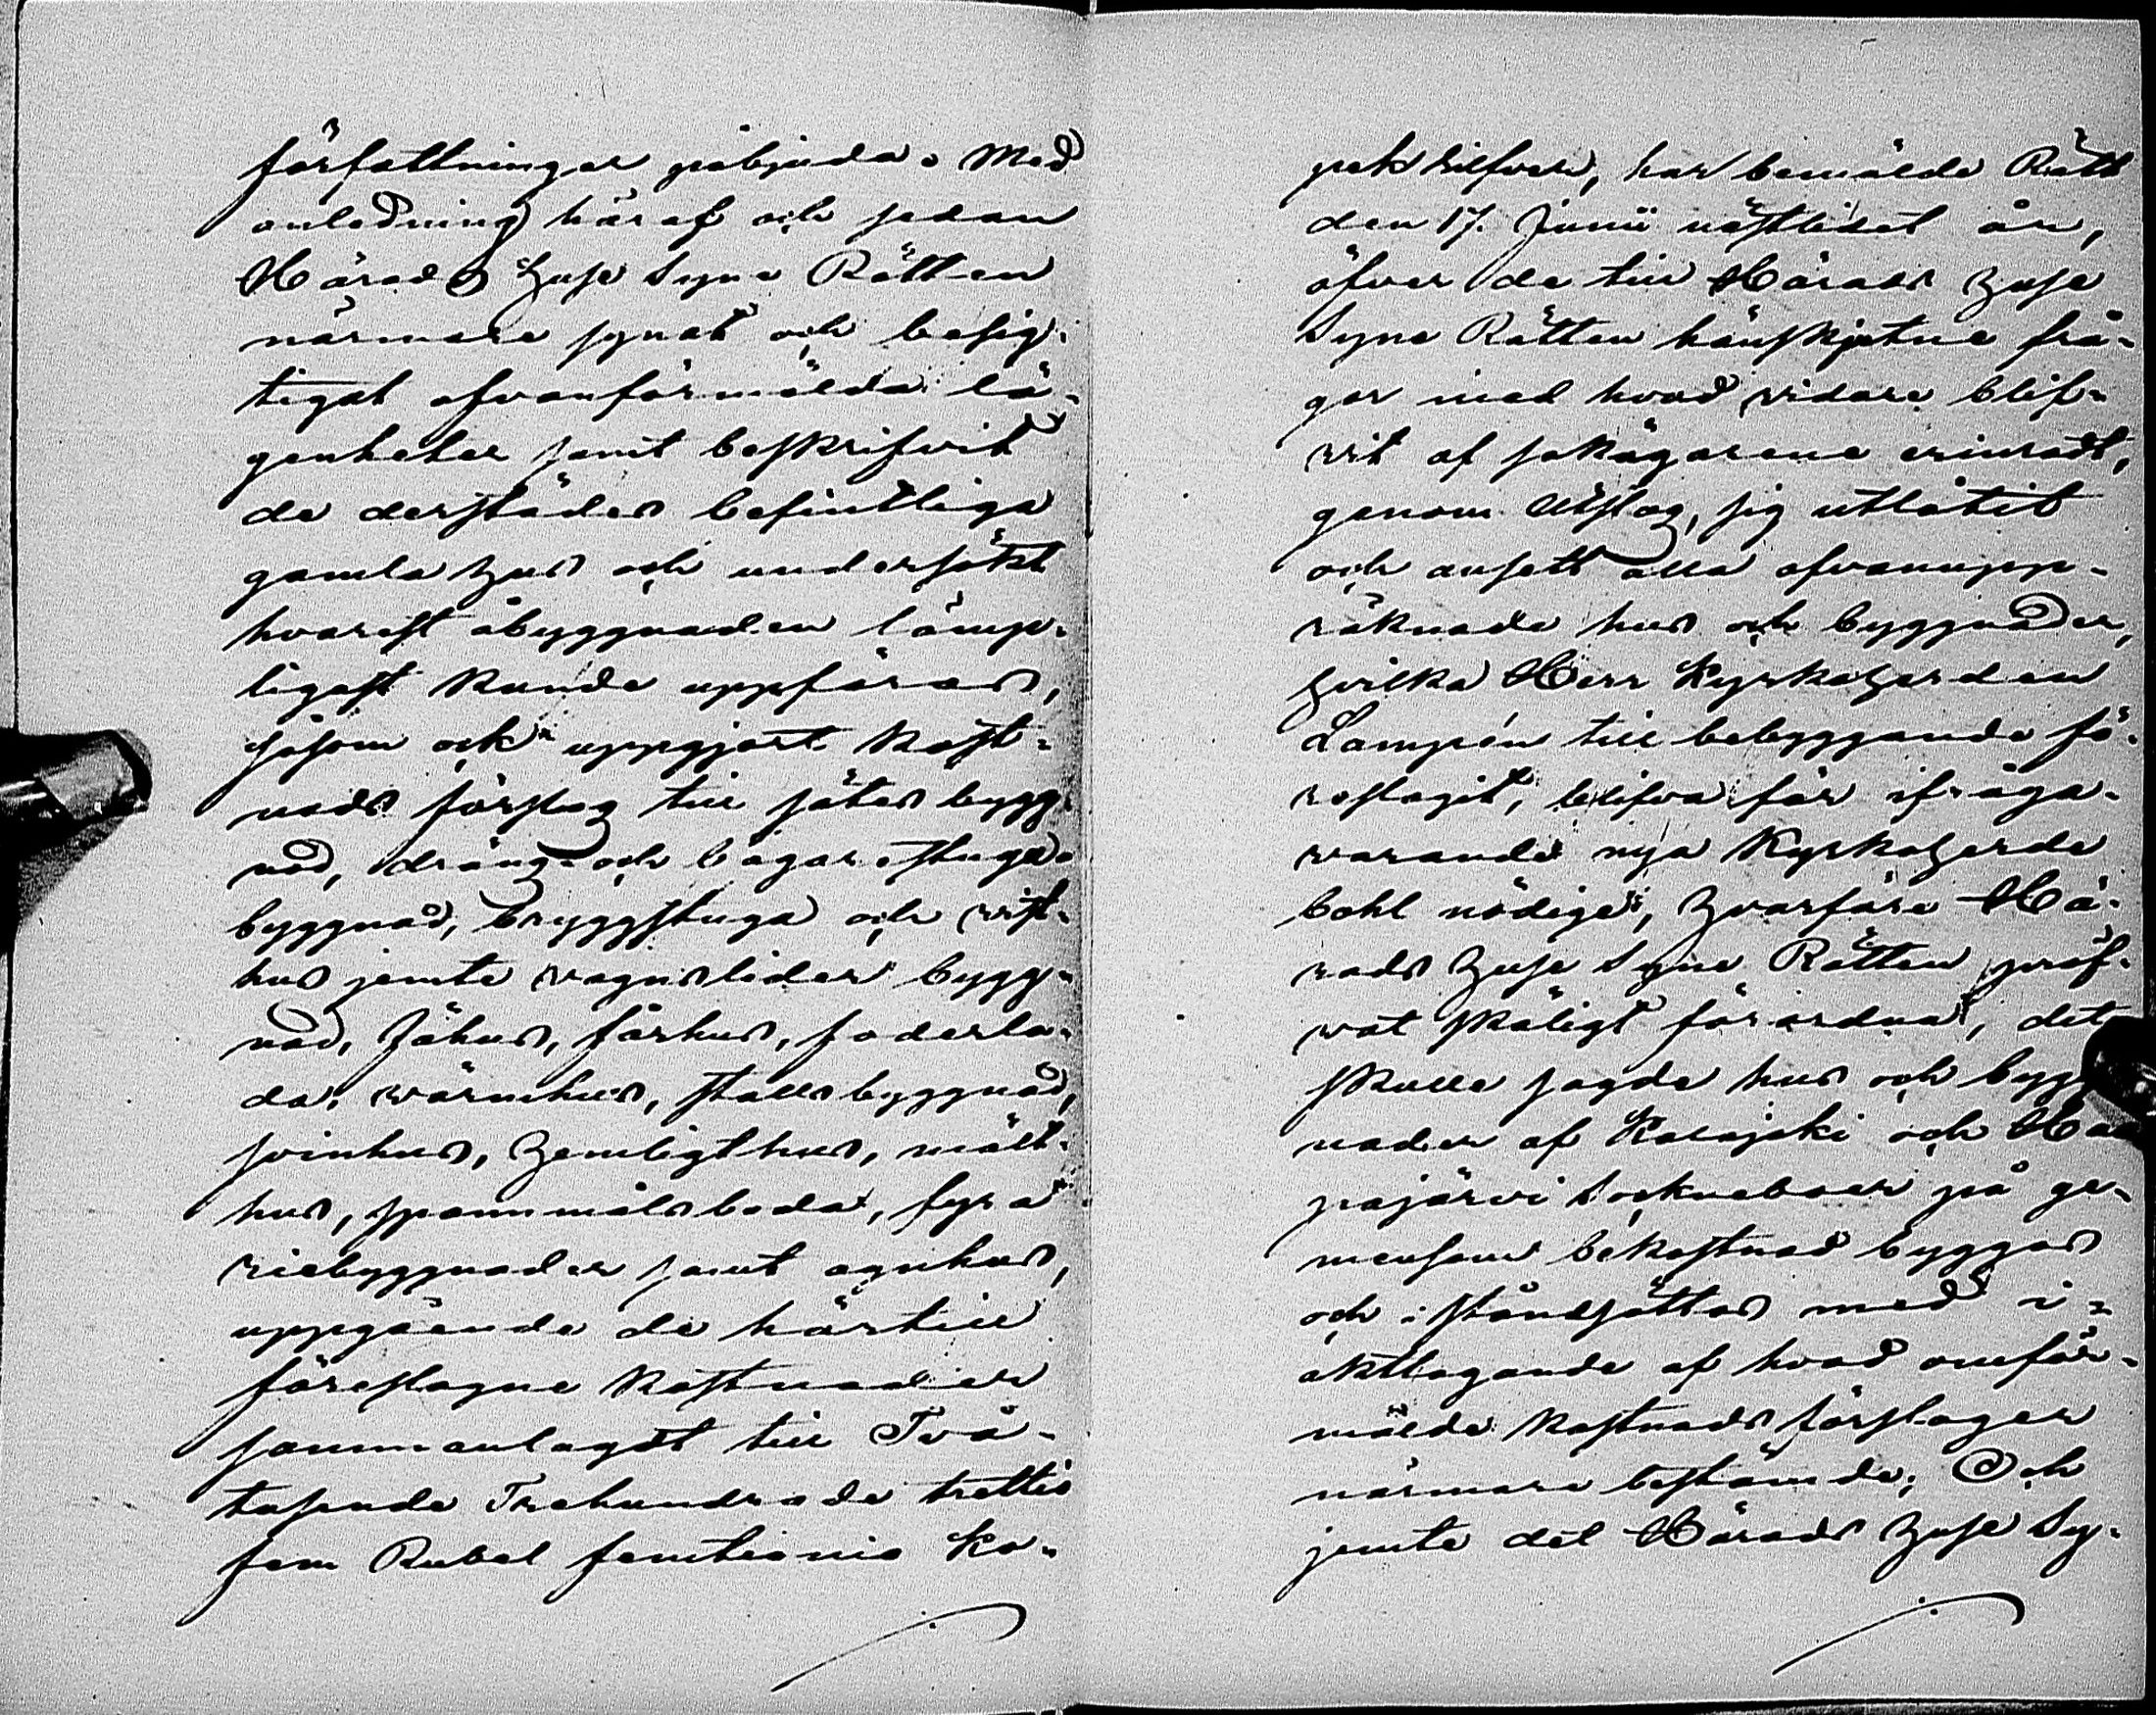 författningar påbjuda. Med
anledning häraf och sedan
Härads Huse Syne Rätten
närmare synat och besig-
tigat ofvanförmälda lä-
genheter samt beskrifvit
de derstädes befintliga
gamla hus och undersökt
hvarest åbyggnaden lämp-
ligast kunde uppföras,
såsom ock uppgjort kost-
nads förslag till sätes bygg-
nad, dräng- och bagarestuge-
byggnad, bryggstuga och vist-
hus jemte vagnslider bygg-
nad, fähus, fårhus, foderla-
da, värmhus, stallsbyggnad,
svinhus, hemligthus, mält-
hus, spannmålsboda, fyra
riebyggnader samt agnhus,
uppgående de härtill
föreslagne kostnader
sammanlagdt till Två-
tusende Trehundrade trettio
fem Rubel femtionio ko-
pek silfver, har bemälde Rätt
den 17. Junii nästlidet år,
öfver de till Härads Huse
Syne Rätten hänskjutne frå-
gor med hvad vidare blif-
vit af sakägarene erinradt,
genom Utslag, sig utlåtit
och ansett alla ofvanupp-
räknade hus och byggnader,
hvilka Herr Kyrkoherden
Lampén till bebyggande fö-
reslagit, blifva för ifråga-
varande nya Kyrkoherde
bohl nödige, hvarföre Hä-
rads Huse Syne Rätten pröf-
vat skäligt förordna, det
skulle sagde hus och bygg-
nader af Karajoki och
pajärvi Sockneboer på ge-
mensam bekostnad byggas
och iståndsättas med i-
akttagande af hvad omför-
mälde kostnads förslager
närmare bestämde; Och
jemte det Härads Huse Sy-